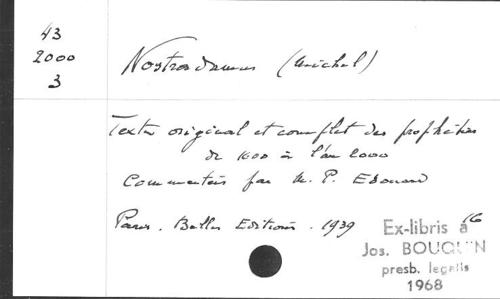 43
2000
3
Nostradamus (Michel)
Texte original et complet des prophéties
de 1600 à l'an 2000
Commentées par M. P. Edouard
Paris. Belles Editions. 1939
16
Ex-libris à
Jos. BOUQUIN
presb. legatis
1968